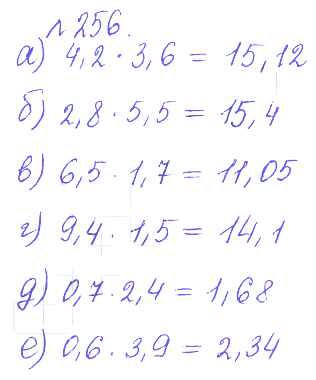 № 256.
а) 4,2 · 3,6 = 15,12
б) 2,8 · 5,5 = 15,4
в) 6,5 · 1,7 = 11,05
г) 9,4 · 1,5 = 14,1
д) 0,7 · 2,4 = 1,68
е) 0,6 · 3,9 = 2,34